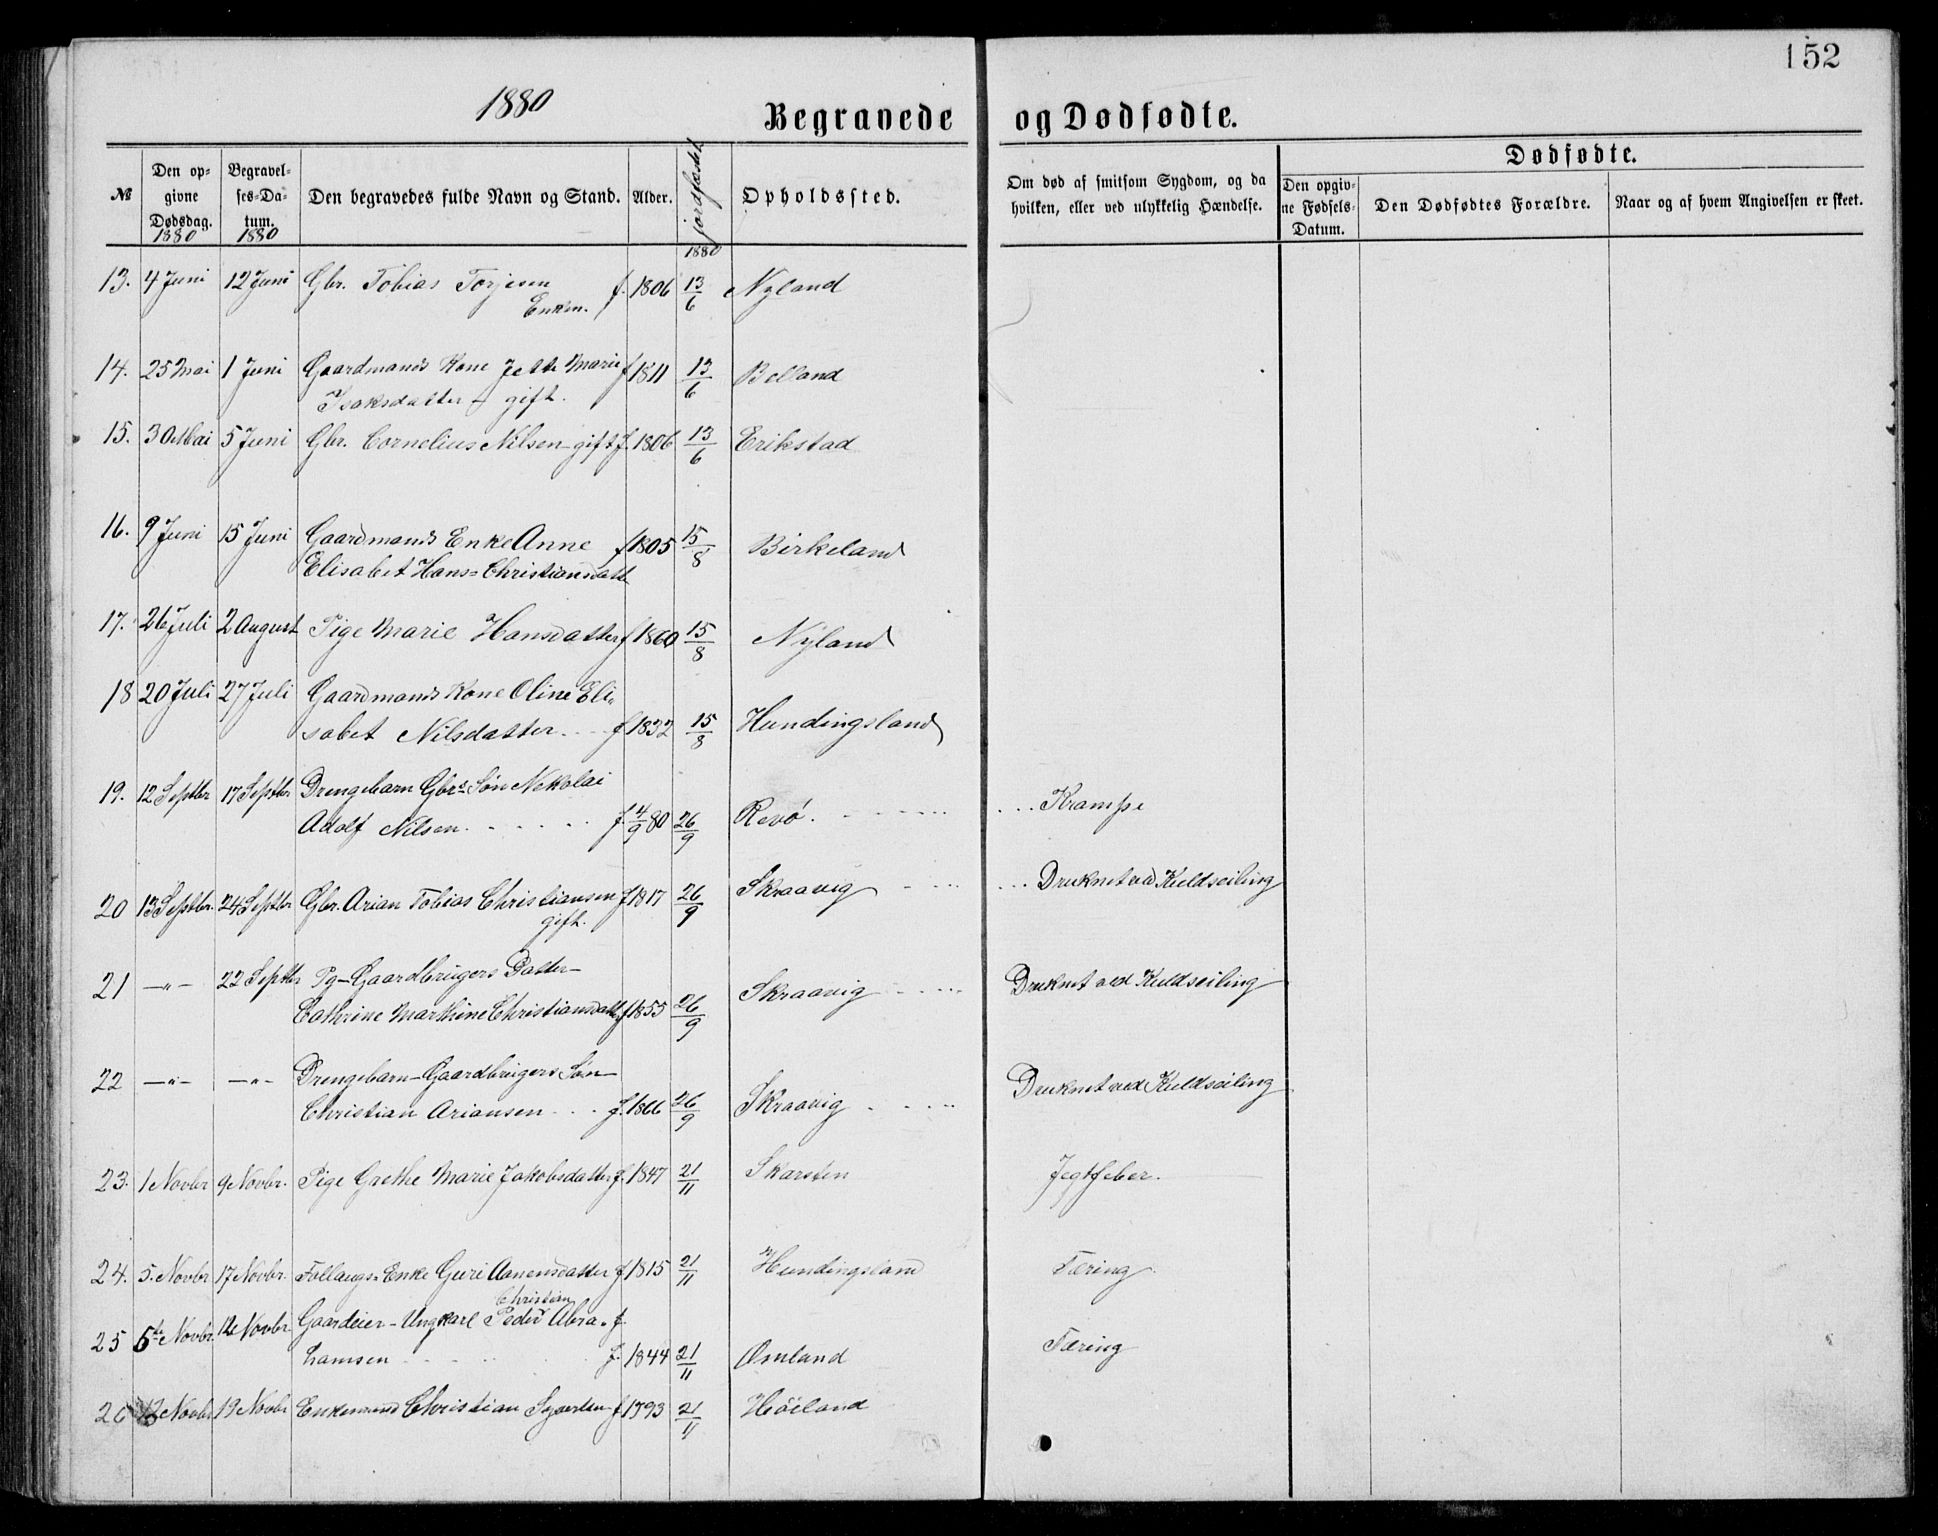 152
1880
Begravede og Dødfødte.
№ Den opgivne Dødsdag. 1880 Begravelses-Datum. 1880 Den begravedes fulde Navn og Stand. Alder. jordfæstet 1880 Opholdssted. Om død af smitsom Sygdom, og da hvilken, eller ved ulykkelig Hændelse. Dødfødte. Den opgivne Fødsels-Datum. Den Dødfødtes Forældre. Naar og af hvem Angivelsen er skeet.
13. 4 Juni 12 Juni Gbr. Tobias Torjesen f. 1806 13/6 Nyland
Enkem.
14. 25 Mai 1 Juni Gaardmands Kone Jette Marie f 1811 13/6 Belland
Isaksdatter - gift.
15. 30 Mai 5 Juni Gbr. Cornelius Nilsen - gift f. 1806 13/6 Erikstad
16. 9 Juni 15 Juni Gaardmands Enke Anne f 1805 15/8 Birkeland
Elisabet Hans=Christiansdatt
17. 26 Juli 2 August Pige Marie Hansdatter f 1860 15/8 Nyland
18 20 Juli 27 Juli Gaardmands Kone Oline Eli-
sabet Nilsdatter . . . f 1832 15/8 Hundingsland
19. 12 Septbr 17 Septbr Drengebarn Gbrs Søn Nikolai
Adolf Nilsen . . . . . f. 4/9 80 26/9 Revø . . . . . . . Krampe
20 13 Septbr. 24 Septbr Gbr. Arian Tobias Christiansen f 1817 26/9 Skraavig . . . . . Druknet ved Kuldseiling
gift.
21 -"- 22 Septbr Pg - Gaardbrugers Datter -
Cathrine Marthine Christiansdatt f 1855 26/9 Skraavig . . . . Druknet ved Kuldseiling
22 -"- -"- Drengebarn - Gaardbrugers Søn -
Christian Ariansen . . . f. 1866 26/9 Skraavig . . . . Druknet ved Kuldseiling
23. 1 Novbr 9 Novbr. Pige Grethe Marie Jakobsdatter f. 1847 21/11 Skarsten Jegtfeber.
24. 5. Novbr 17 Novbr. Follaugs-Enke Guri Aanensdatter f 1815 21/11 Hundingsland Tæring.
Christian
25 Novbr. 12 Novbr Gaardeier - Ungkarl Peder Abra- f.
hamsen . . . . f. 1844 21/11 Omland Tæring
26 Novbr 19 Novbr Enkemand Christian f 1793 21/11 Høiland